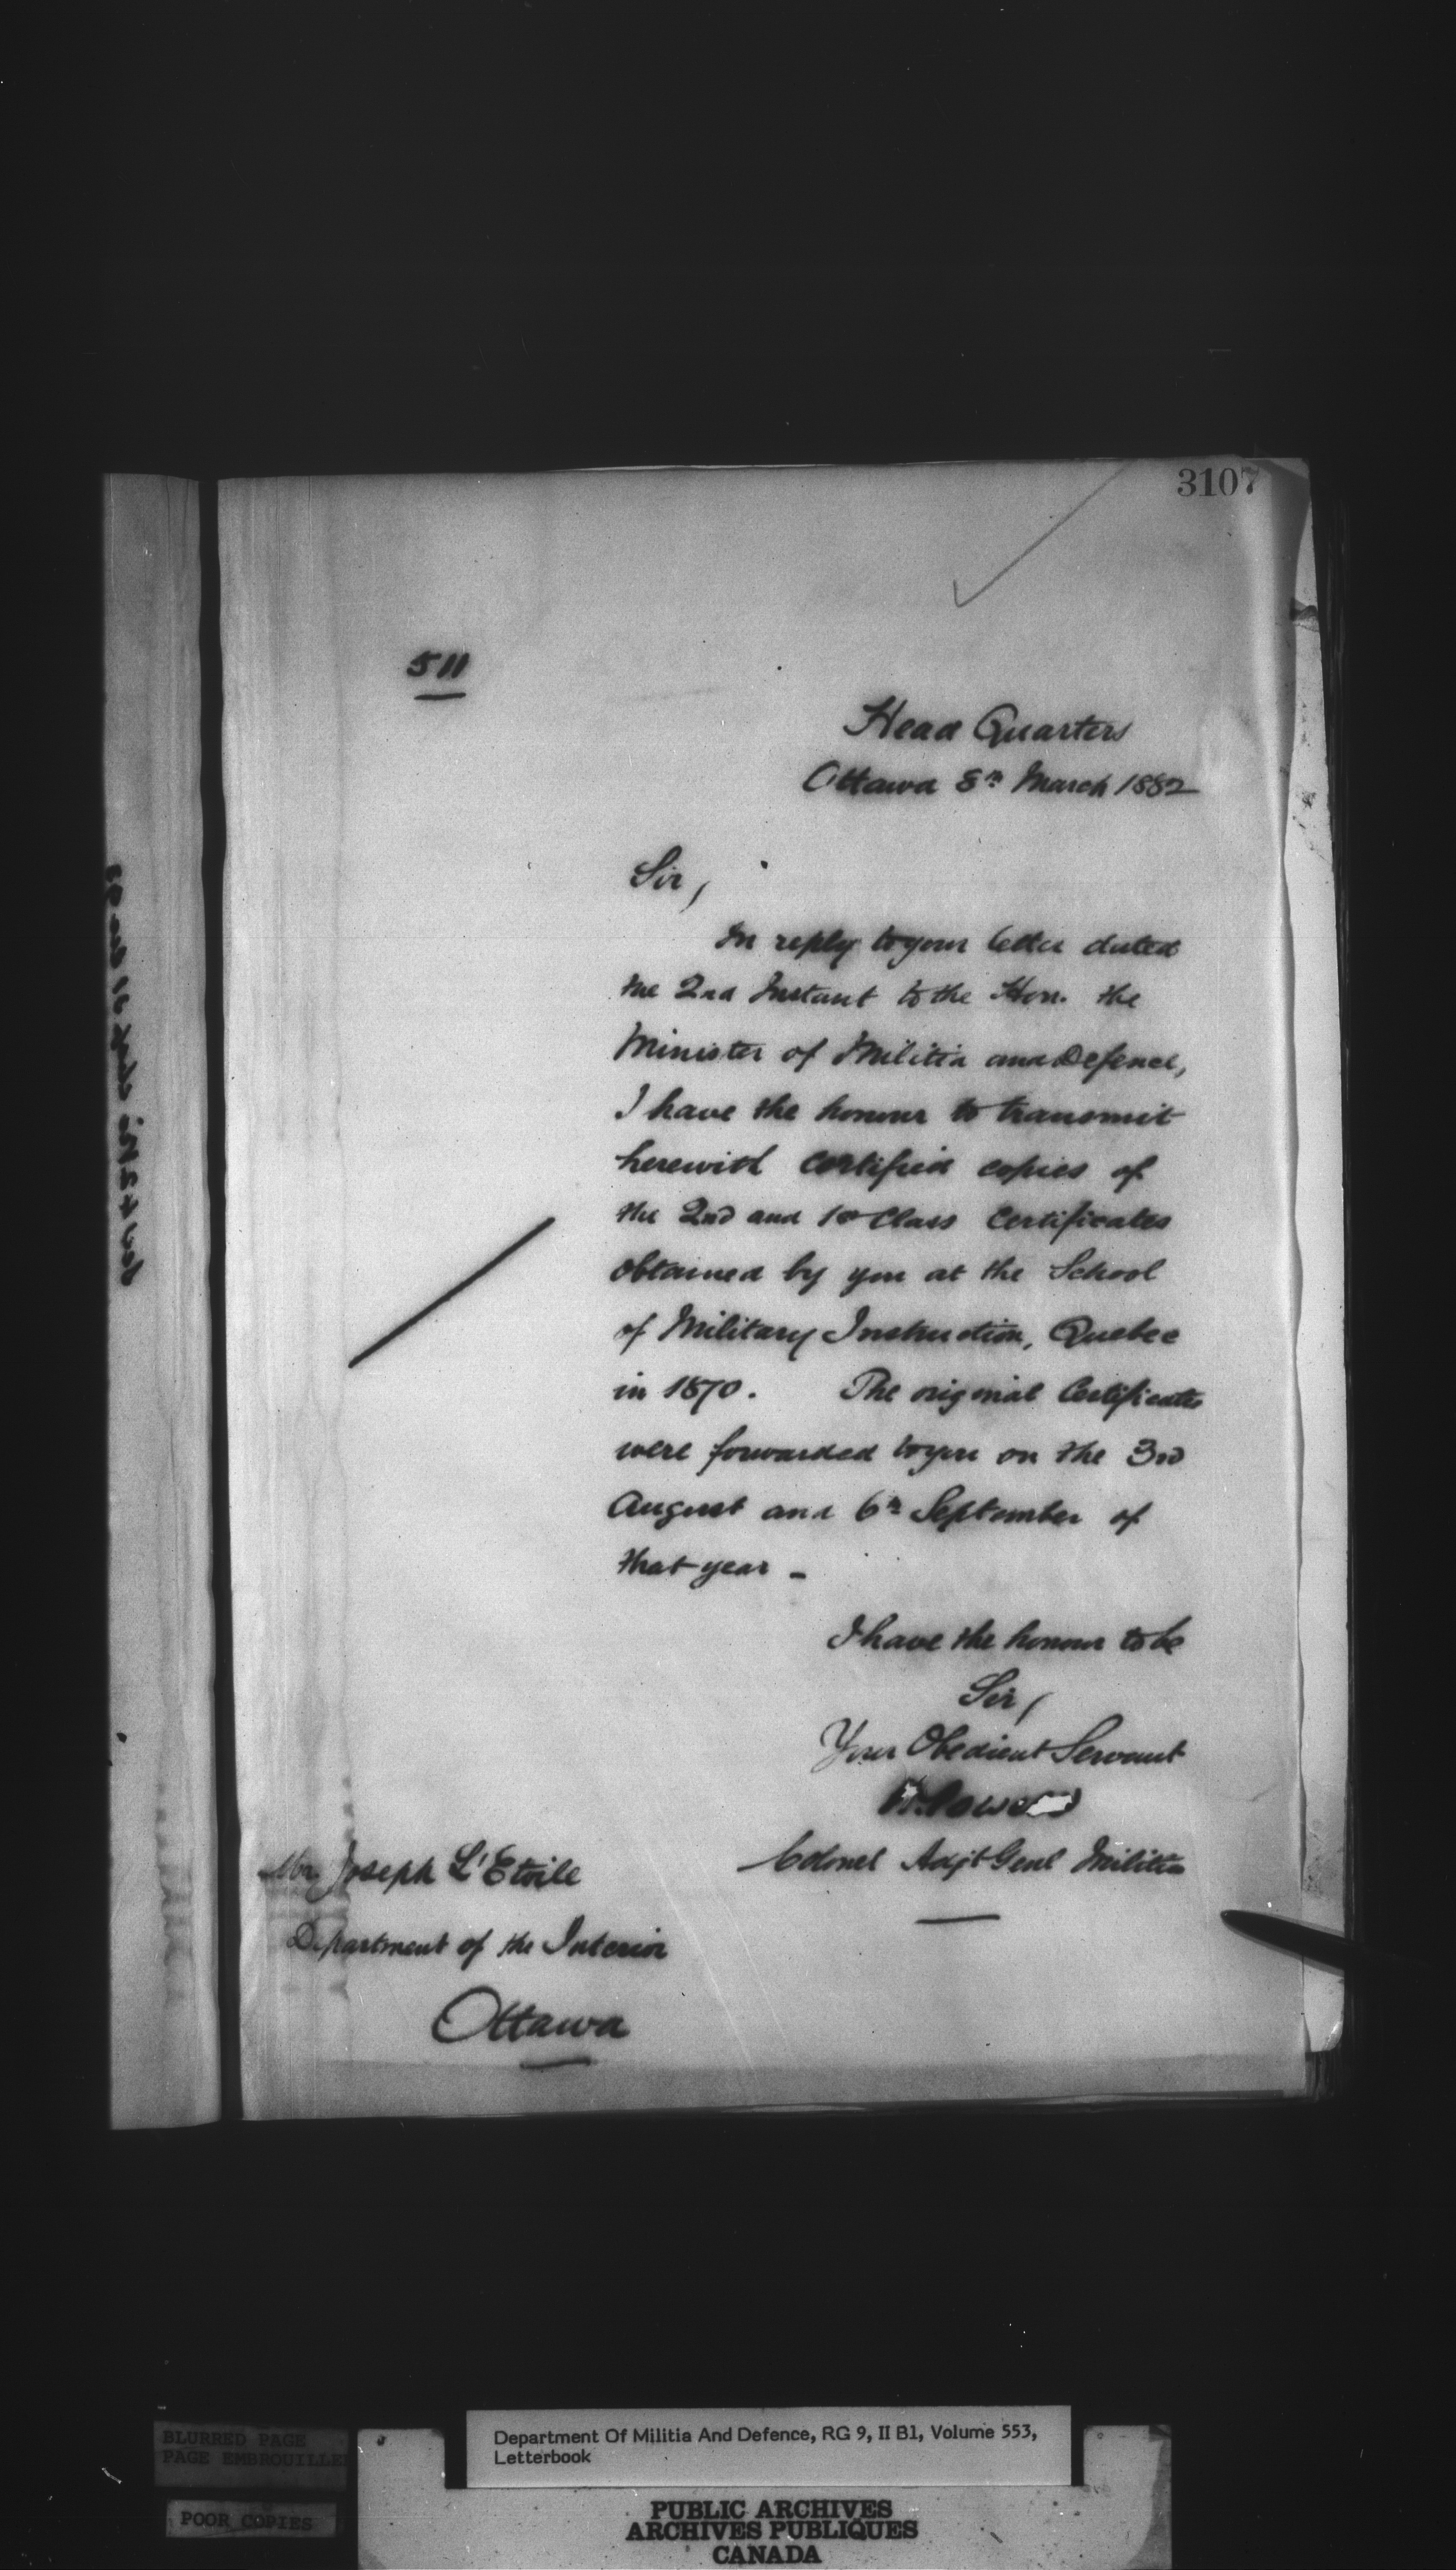 3107
511
Head Quarters
Ottawa 8th March 1882
Sir,
In reply to your letter dated
the 2nd Instant to the Hon. the
Minister of Militia and Defence,
I have the honour to transmit
herewith certified copies of
the 2nd and 1st Class Certificates
obtained by you at the School
of Military Instruction, Quebec
in 1870. The original Certificates
were forwarded to you on the 3rd
August and 6th September of
that year -
I have the honour to be
Sir,
Your Obedient Servant
W. Powell
Colonel Adjt Genl Militia
Mr Joseph L'Etoile
Department of the Interior
Ottawa
BLURRED PAGE
PAGE EMBROUILLEE
POOR COPIES
Department Of Militia And Defence, RG 9, II B1, Volume 553,
Letterbook
PUBLIC ARCHIVES
ARCHIVES PUBLIQUES
CANADA